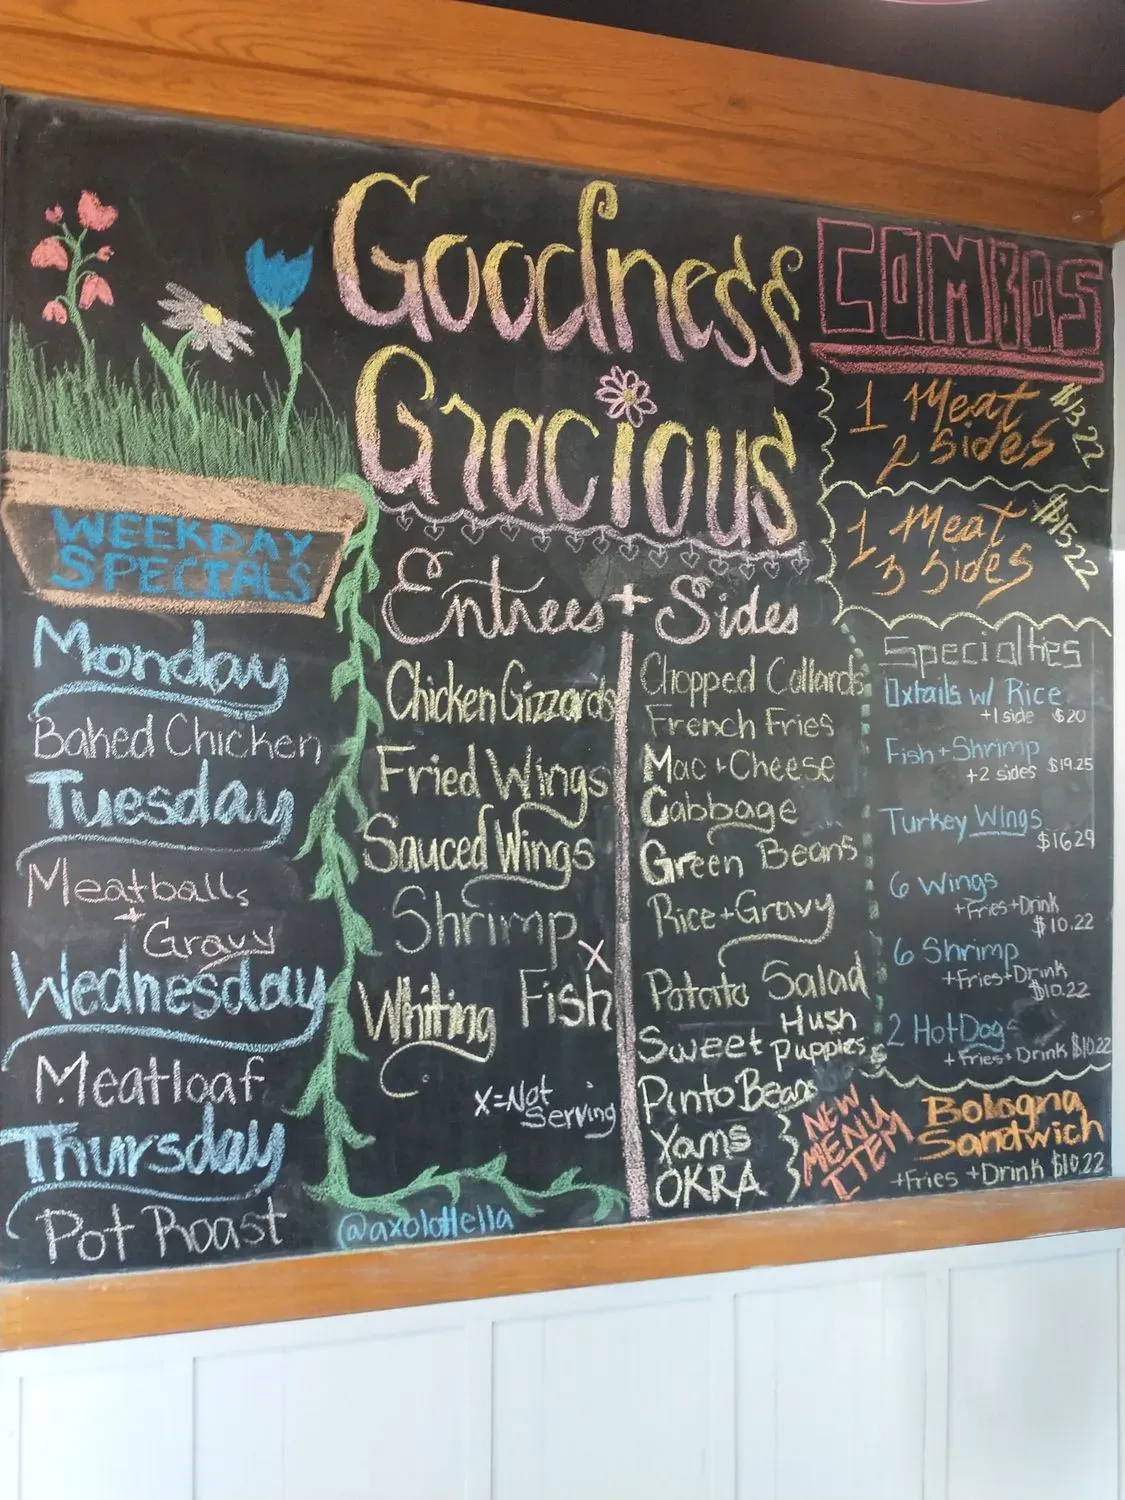 Goodness
Gracious
WEEKDAY
SPECIALS
Monday
Baked Chicken
Tuesday
Meatballs
+
Gravy
Wednesday
Meatloaf
Thursday
Pot Roast
Entrees + Sides
Chicken Gizzards
Fried Wings
Sauced Wings
Shrimp
X
Whiting Fish
X=Not
Serving
@axolotlella
Chopped Collards
French Fries
Mac + Cheese
Cabbage
Green Beans
Rice + Gravy
Potato Salad
Sweet Hush
Puppies
Pinto Beans
Yams
OKRA
COMBOS
1 Meat $13.22
2 Sides
1 Meat $15.22
3 Sides
Specialties
Oxtails w/ Rice
+1 side $20
Fish + Shrimp
+2 sides $19.25
Turkey Wings
$16.29
6 Wings
+Fries+Drink
$10.22
6 Shrimp
+Fries+Drink
$10.22
2 HotDogs
+Fries+Drink $10.22
NEW
MENU
ITEM
Bologna
Sandwich
+Fries +Drink $10.22